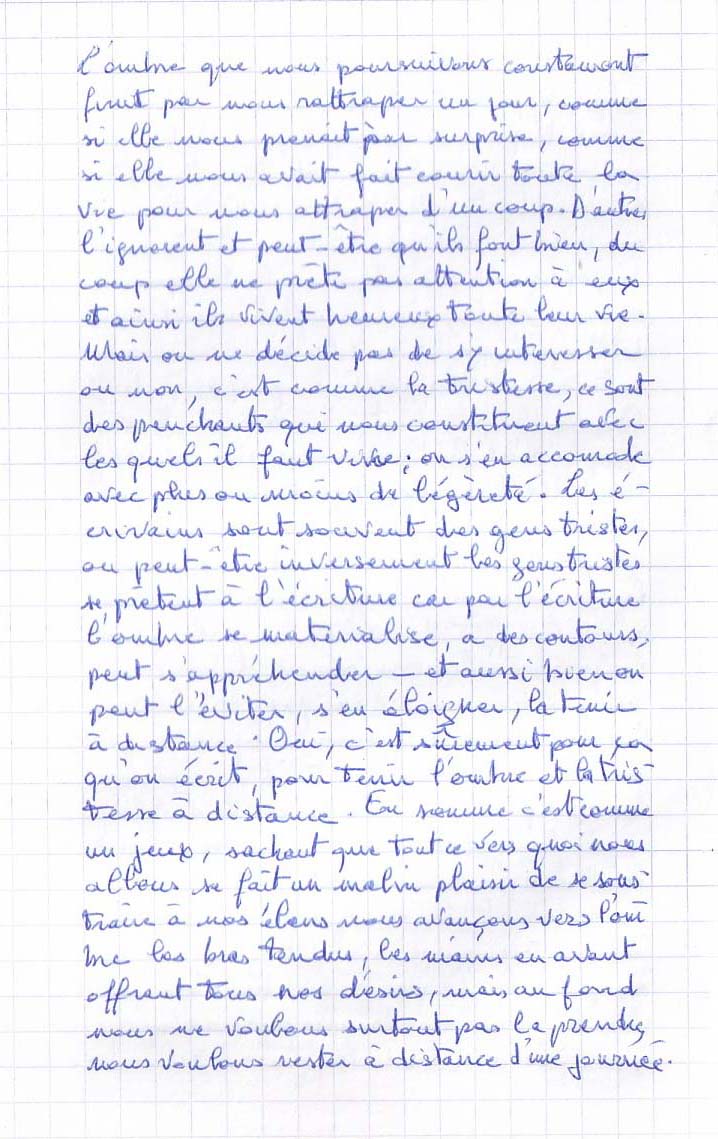 l'ombre que nous poursuivons constamment
finit par nous rattraper un jour, comme
si elle nous prenait par surprise, comme
si elle nous avait fait courir toute la
vie pour nous attraper d'un coup. D'autres
l'ignorent et peut-être qu'ils font bien, du
coup elle ne prête pas attention à eux
et ainsi ils vivent heureux toute leur vie.
Mais on ne décide pas de s'y intéresser
ou non, c'est comme la tristesse, ce sont
des penchants qui nous constituent avec
lesquels il faut vivre ; on s'en accomode
avec plus ou moins de légèreté. Les é-
crivains sont souvent des gens tristes,
ou peut-être inversement les gens tristes
se prêtent à l'écriture car par l'écriture
l'ombre se matérialise, a des contours,
peut s'appréhender — et aussi bien on
peut l'éviter, s'en éloigner, la tenir
à distance. Oui, c'est sûrement pour ça
qu'on écrit, pour tenir l'ombre et la tris
tesse à distance. En somme c'est comme
un jeux, sachant que tout ce vers quoi nous
allons se fait un malin plaisir de se sous
traire à nos élans nous avançons vers l'om
bre les bras tendus, les mains en avant
offrant tous nos désirs, mais au fond
nous ne voulons surtout pas la prendre,
nous voulons rester à distance d'une journée.